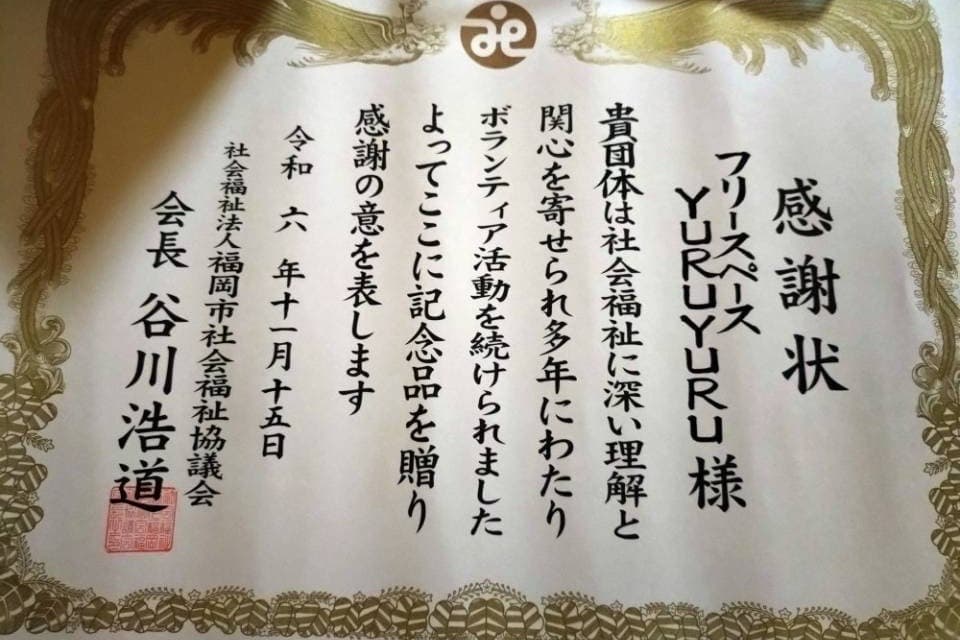 感謝状
フリースペース
YURUYURU 様
貴団体は社会福祉に深い理解と
関心を寄せられ多年にわたり
ボランティア活動を続けられました
よってここに記念品を贈り
感謝の意を表します
令和六年十一月十五日
社会福祉法人福岡市社会福祉協議会
会長 谷川浩道